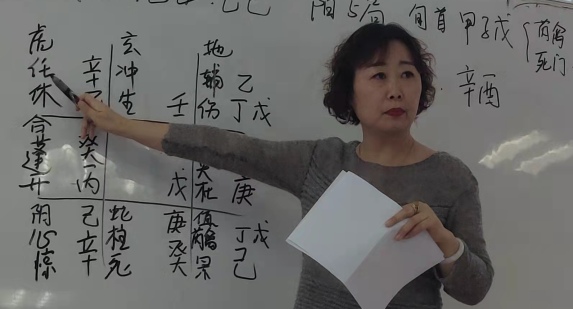 5局 旬首 甲子戊
芮禽
死门
辛酉
虎 玄 地
任 辛 冲 辅 乙
休 生 壬 伤 丁戊
合
蓬 癸
开 丙 戊 庚
阴 己 蛇 庚 值 丁戊
心 辛 柱 癸 芮禽 己
惊 死 景